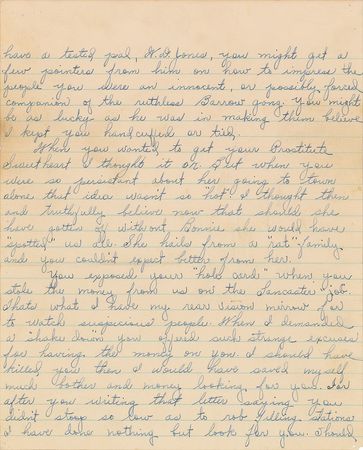 have a tested pal, W. D. Jones, you might get a
few pointers from him on how to impress the
people you were an innocent, or possibly forced
companion of the ruthless Barrow gang. You might
be as lucky as he was in making them believe
I kept you handcuffed or tied.
When you wanted to get your Prostitute
Sweetheart I thought it O.K. But when you
were so persistant about her going to town
alone that idea wasn't so "hot" I thought then
and truthfully believe now that should she
have gotten off without Bonnie she would have
"spotted" us all. She hails from a "rat" family
and you couldn't expect better from her.
You exposed your "hold card" when you
stole the money from us on the "Lancaster" job.
Thats what I have my rear vision mirrow for
to watch suspicious people. When I demanded
a "shake down" you offered such strange excuses
for having the money on you. I should have
killed you then I would have saved myself
much bother and money looking for you. For
after you writing that letter saying you
didn't stoop so low as to rob filling stations
I have done nothing but look for you. Should